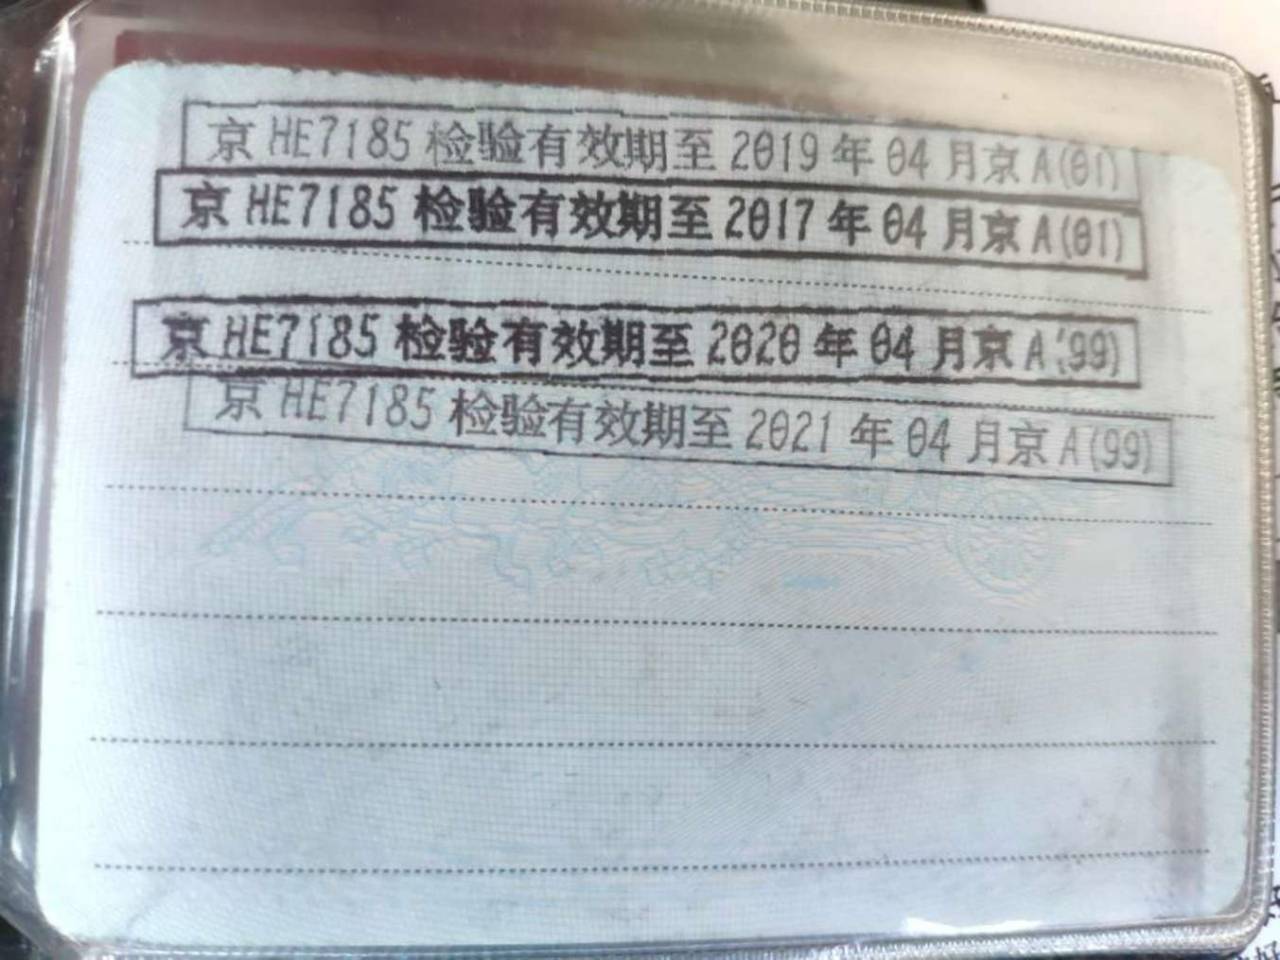 京 HE7185 检验有效期至 2019 年 04 月京 A(01)
京 HE7185 检验有效期至 2017 年 04 月京 A(01)
京 HE7185 检验有效期至 2020 年 04 月京 A(99)
京 HE7185 检验有效期至 2021 年 04 月京 A(99)